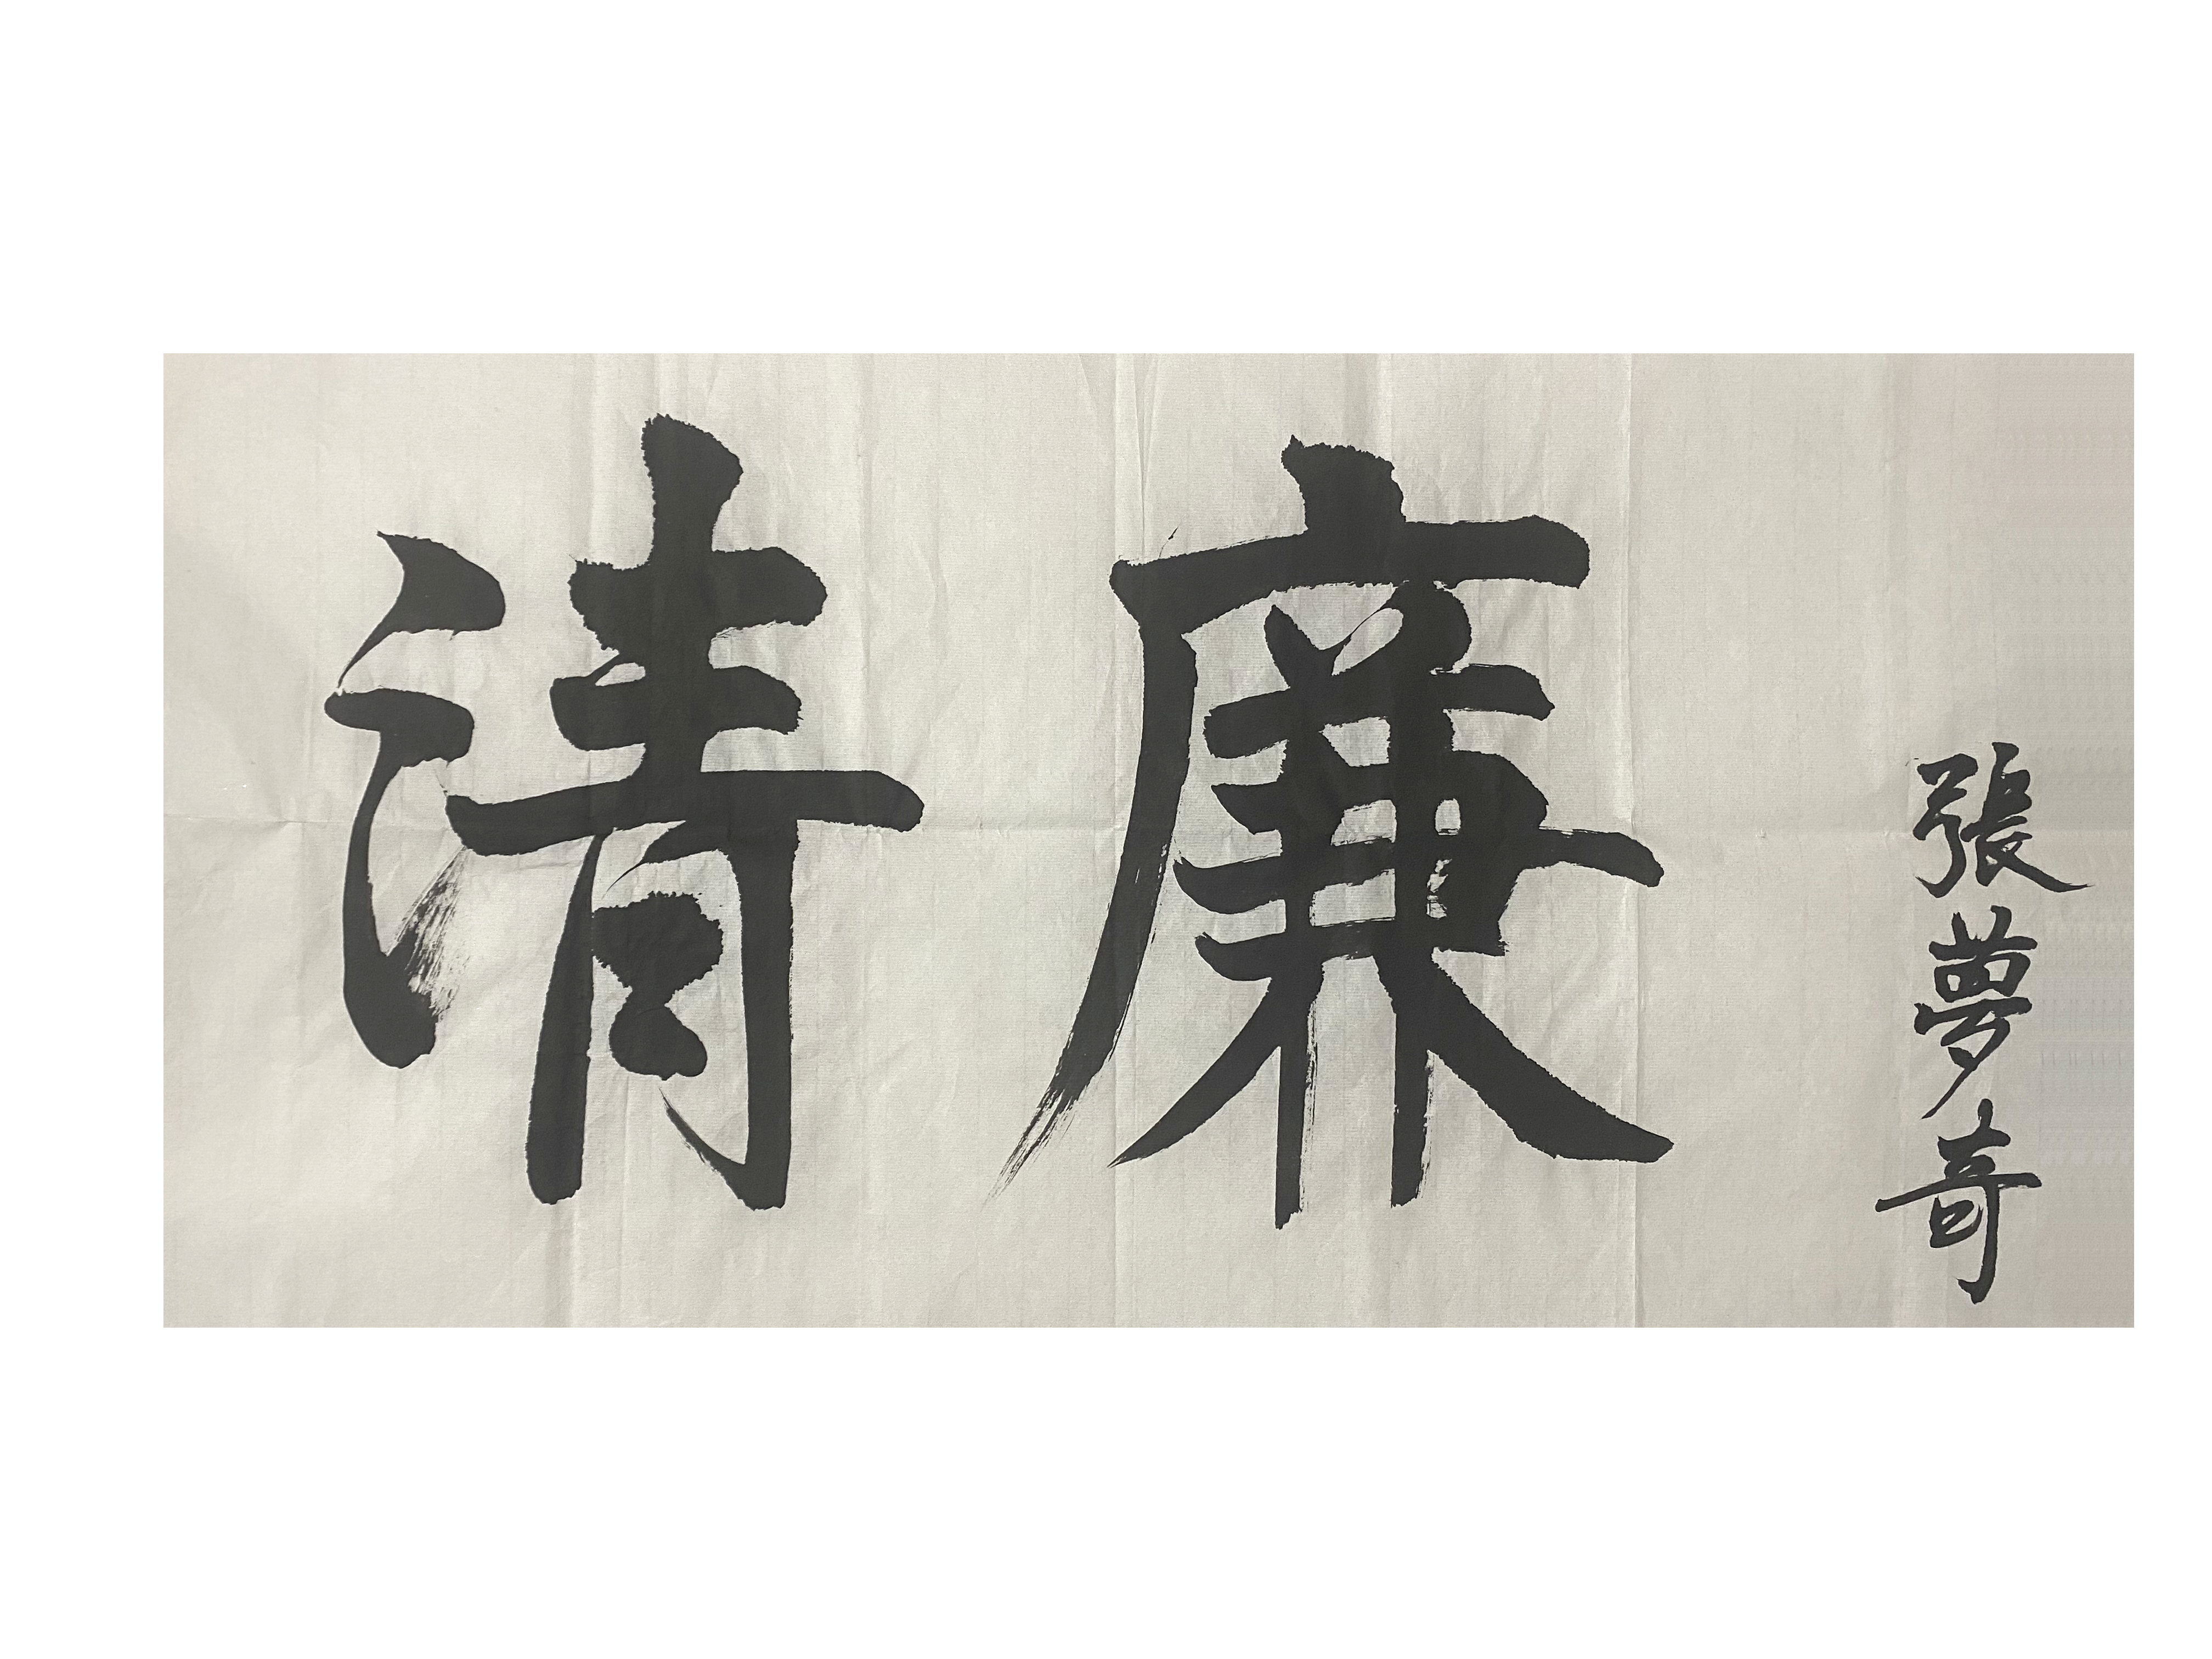 清廉
張夢奇